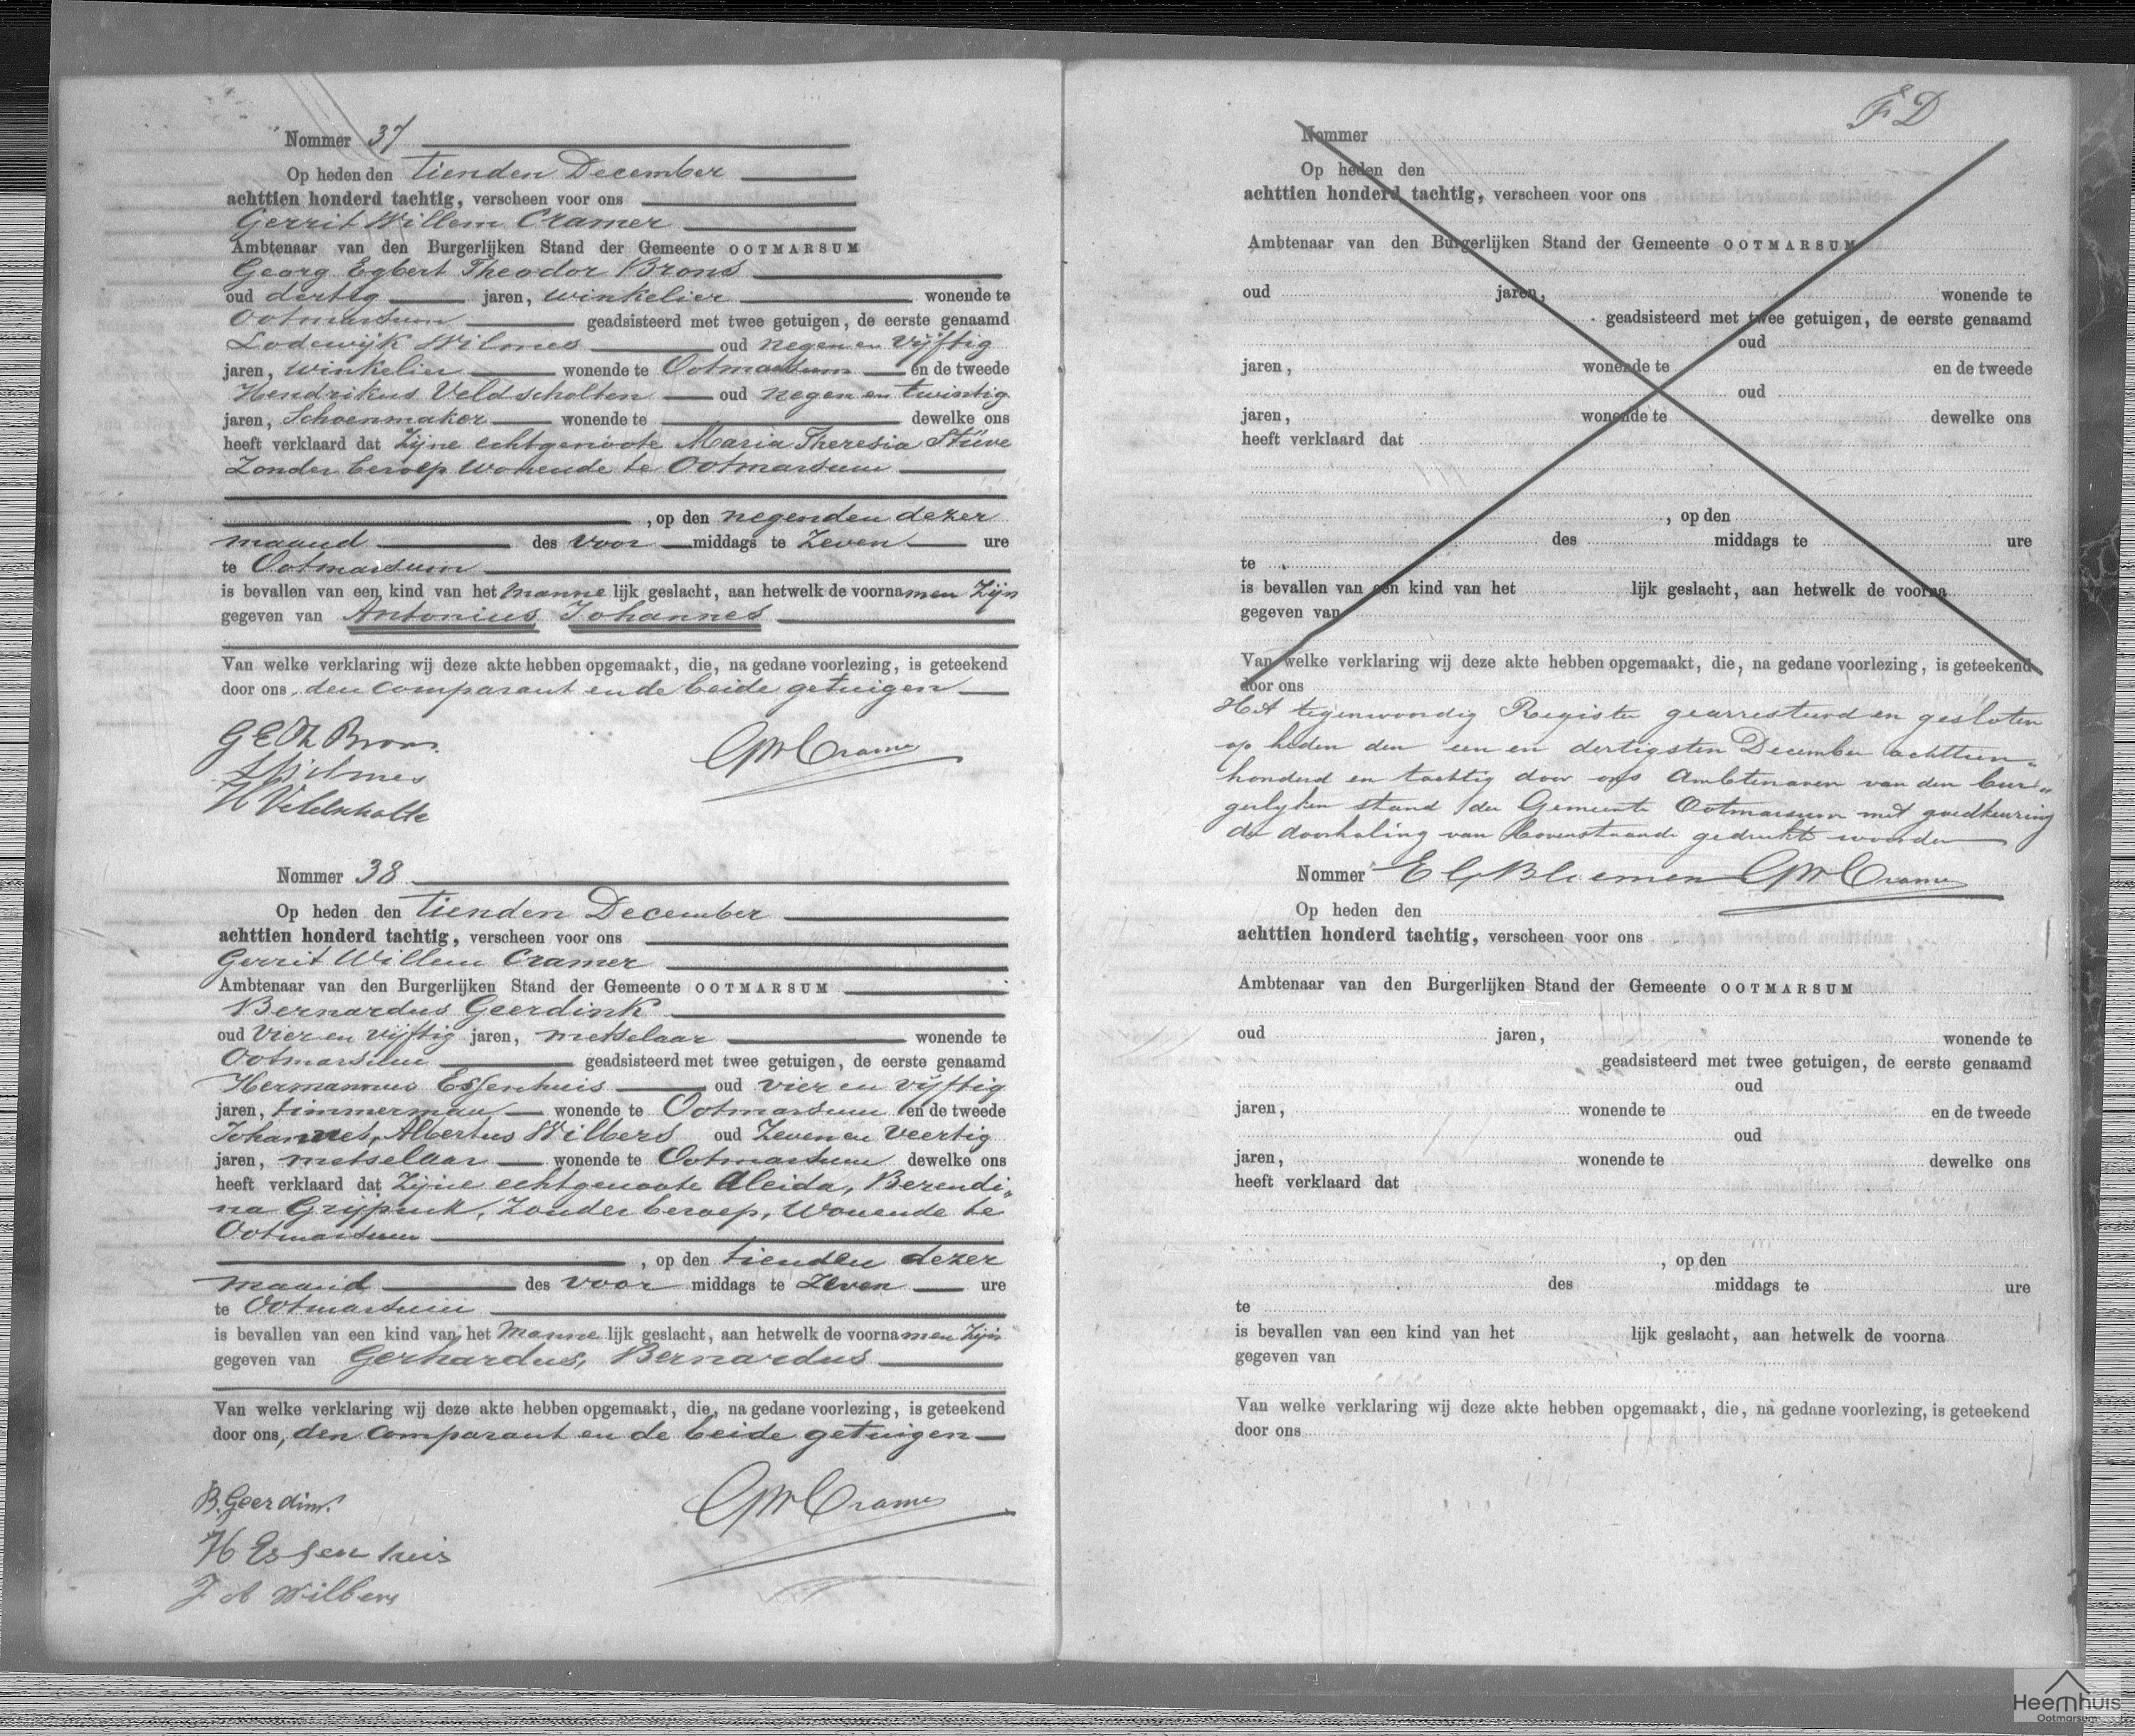 Nommer 37
Op heden den tienden December
achttien honderd tachtig, verscheen voor ons
Gerrit Willem Cramer
Ambtenaar van den Burgerlijken Stand der Gemeente OOTMARSUM
Georg Egbert Theodor Brons
oud dertig jaren, winkelier wonende te
Ootmarsum geadsisteerd met twee getuigen, de eerste genaamd
Lodewijk Wilmes oud negen en vijftig
jaren, winkelier wonende te Ootmarsum en de tweede
Hendrikus Veldscholten oud negen en twintig
jaren, Schoenmaker wonende te dewelke ons
heeft verklaard dat Zijne echtgenoote Maria Theresia Stüve
Zonder beroep wonende te Ootmarsum
, op den negenden dezer
maand des voor middags te Zeven ure
te Ootmarsum
is bevallen van een kind van het manne lijk geslacht, aan hetwelk de voornamen Zijn
gegeven van Antonius Johannes
Van welke verklaring wij deze akte hebben opgemaakt, die, na gedane voorlezing, is geteekend
door ons, den comparant en de beide getuigen
G E Th Brons
L Wilmes
H Veldscholte
GW Cramer
Nommer 38
Op heden den tienden December
achttien honderd tachtig, verscheen voor ons
Gerrit Willem Cramer
Ambtenaar van den Burgerlijken Stand der Gemeente OOTMARSUM
Bernardus Geerdink
oud Vier en vijftig jaren, metselaar wonende te
Ootmarsum geadsisteerd met twee getuigen, de eerste genaamd
Hermannus Essenhuis oud vier en vijftig
jaren, timmerman wonende te Ootmarsum en de tweede
Johannes, Albertus Wilbers oud Zeven en Veertig
jaren, metselaar wonende te Ootmarsum dewelke ons
heeft verklaard dat Zijne echtgenoote Aleida, Berendi„
na Grijpink, Zonder beroep, Wonende te
Ootmarsum
, op den tienden dezer
maand des voor middags te Zeven ure
te Ootmarsum
is bevallen van een kind van het Manne lijk geslacht, aan hetwelk de voornamen Zijn
gegeven van Gerhardus, Bernardus
Van welke verklaring wij deze akte hebben opgemaakt, die, na gedane voorlezing, is geteekend
door ons, den comparant en de beide getuigen
B. Geerdink
H Essenhuis
J A Wilbers
GW Cramer
F D
Nommer
Op heden den
achttien honderd tachtig, verscheen voor ons
Ambtenaar van den Burgerlijken Stand der Gemeente OOTMARSUM
oud jaren, wonende te
geadsisteerd met twee getuigen, de eerste genaamd
oud
jaren, wonende te en de tweede
oud
jaren, wonende te dewelke ons
heeft verklaard dat
, op den
des middags te ure
te
is bevallen van een kind van het lijk geslacht, aan hetwelk de voorna
gegeven van
Van welke verklaring wij deze akte hebben opgemaakt, die, na gedane voorlezing, is geteekend
door ons
Het tegenwoordig Register gearresteerd en gesloten
op heden den een en dertigsten December achttien„
honderd en tachtig door ons Ambtenaren van den bur„
gerlyken stand der Gemeente Ootmarsum met goedkeuring
der doorhaling van bovenstaande gedrukte woorden
Nommer GW Cramer
Op heden den
achttien honderd tachtig, verscheen voor ons
Ambtenaar van den Burgerlijken Stand der Gemeente OOTMARSUM
oud jaren, wonende te
geadsisteerd met twee getuigen, de eerste genaamd
oud
jaren, wonende te en de tweede
oud
jaren, wonende te dewelke ons
heeft verklaard dat
, op den
des middags te ure
te
is bevallen van een kind van het lijk geslacht, aan hetwelk de voorna
gegeven van
Van welke verklaring wij deze akte hebben opgemaakt, die, na gedane voorlezing, is geteekend
door ons
Heemhuis
Ootmarsum